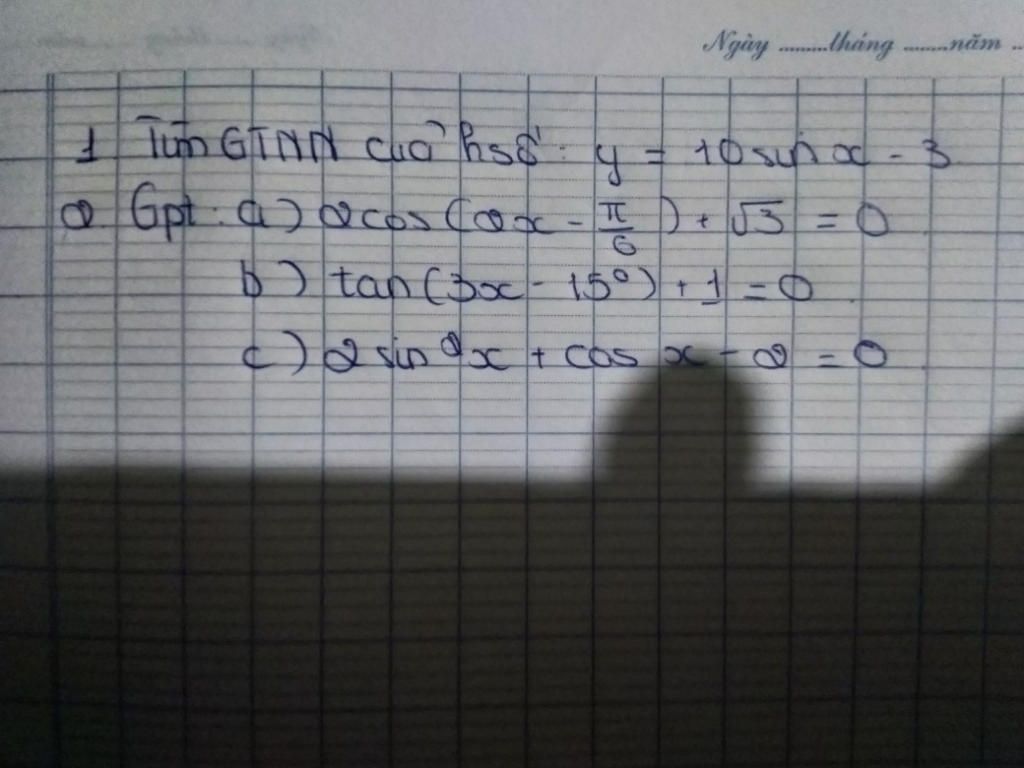 Ngày ........tháng .......năm ..
1 Tìm GTNN của hsố: y = 10 sin x - 3
2 Gpt: a) 2cos(2x - π/6) + √3 = 0
b) tan(3x - 15°) + 1 = 0.
c) 2 sin²x + cos x - 2 = 0